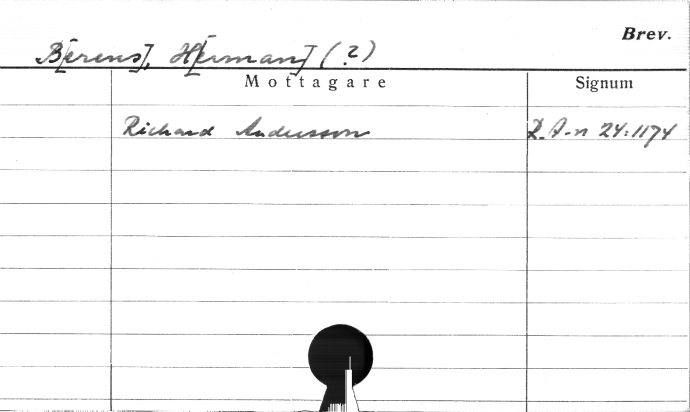 Brev.
B[erens], H[erman] (?)
Mottagare Signum
Richard Andersson R.A-n 24:1174